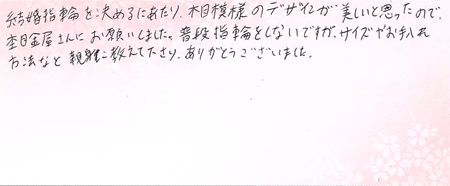 結婚指輪を決めるにあたり、木目模様のデザインが美しいと思ったので、
杢目金屋さんにお願いしました。普段指輪をしないですが、サイズやお手入れ
方法など親身に教えて下さり、ありがとうございました。